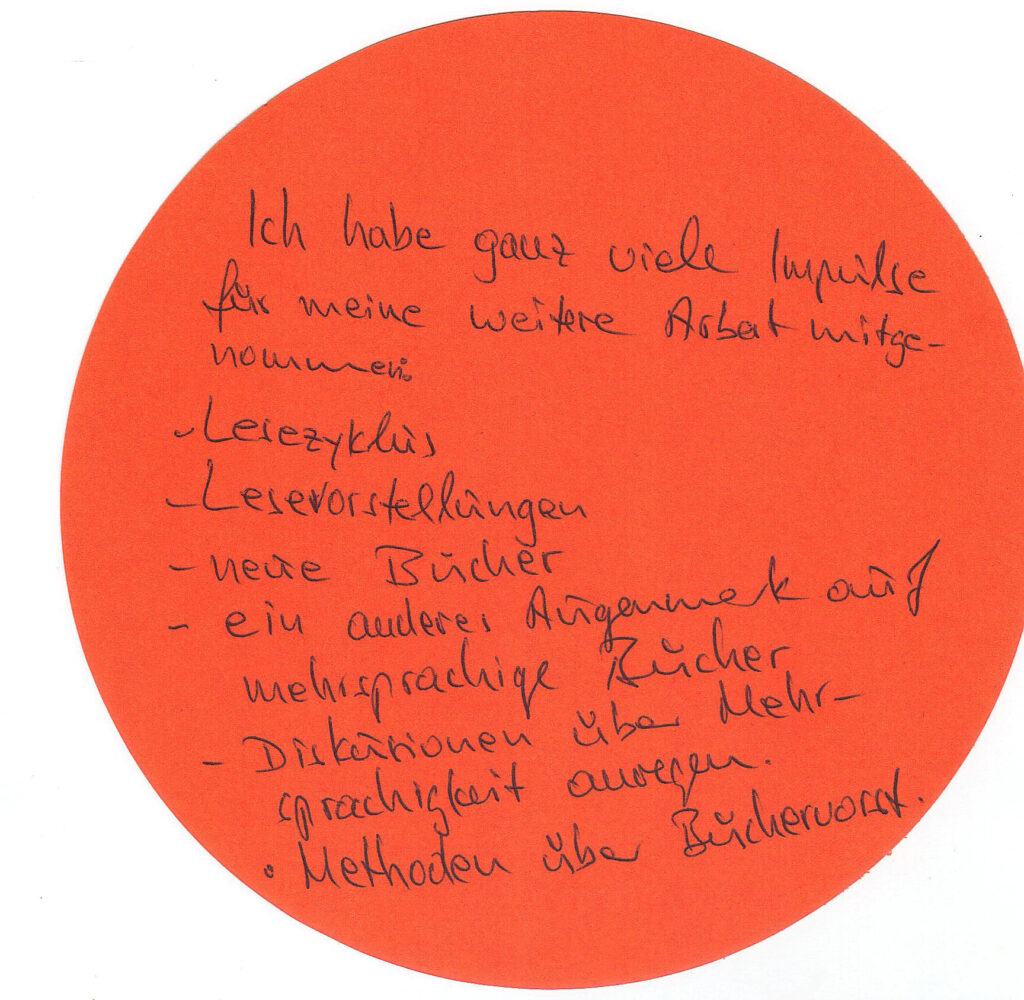 Ich habe ganz viele Impulse
für meine weitere Arbeit mitge-
nommen:
- Lesezyklus
- Lesevorstellungen
- neue Bücher
- ein anderes Augenmerk auf
mehrsprachige Bücher
- Diskusionen über Mehr-
sprachigkeit anregen.
• Methoden über Büchervorst.